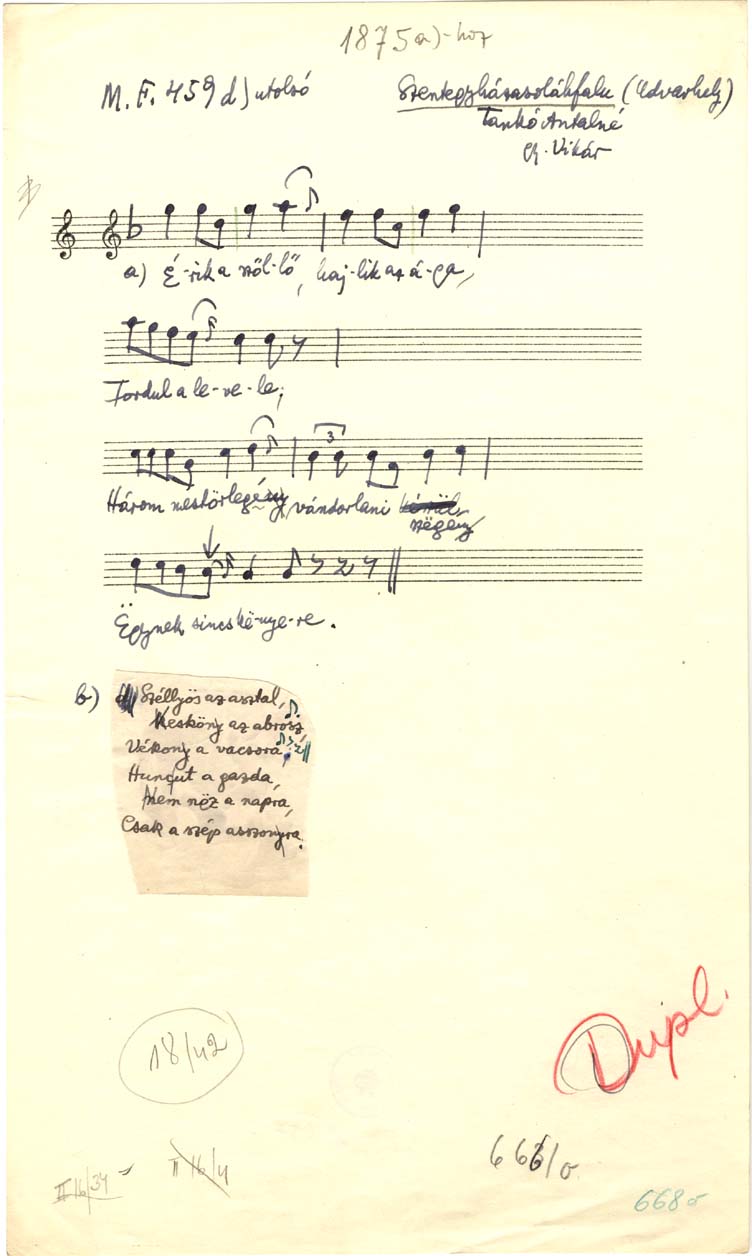 1875 a)-hoz
M. F. 459 d) utolsó
Szentegyházasoláhfalu (Udvarhely)
Tankó Antalné
gy. Vikár
a) É-rik a szől-lő, haj-lik az á-ga,
Fordul a le-ve-le;
3
Három mëstörlegény vándorlani
szëgény
Ëgynek sincs ke-nye-re.
b) Széllyös az asztal,
Kesköny az abrosz,
Vékony a vacsora;
Huncut a gazda,
Nem nëz a napra,
Csak a szép asszonyra.
18/42
Dupl.
II 16/34 = II 16/4
668 o